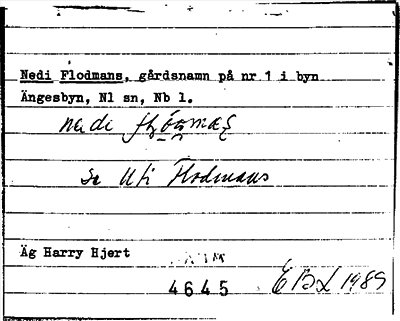 Nedi Flodmans, gårdsnamn på nr 1 i byn
Ängesbyn, Nl sn, Nb l.
nedi
se Uti Flodmans
Äg Harry Hjert
4645
EBL 1989